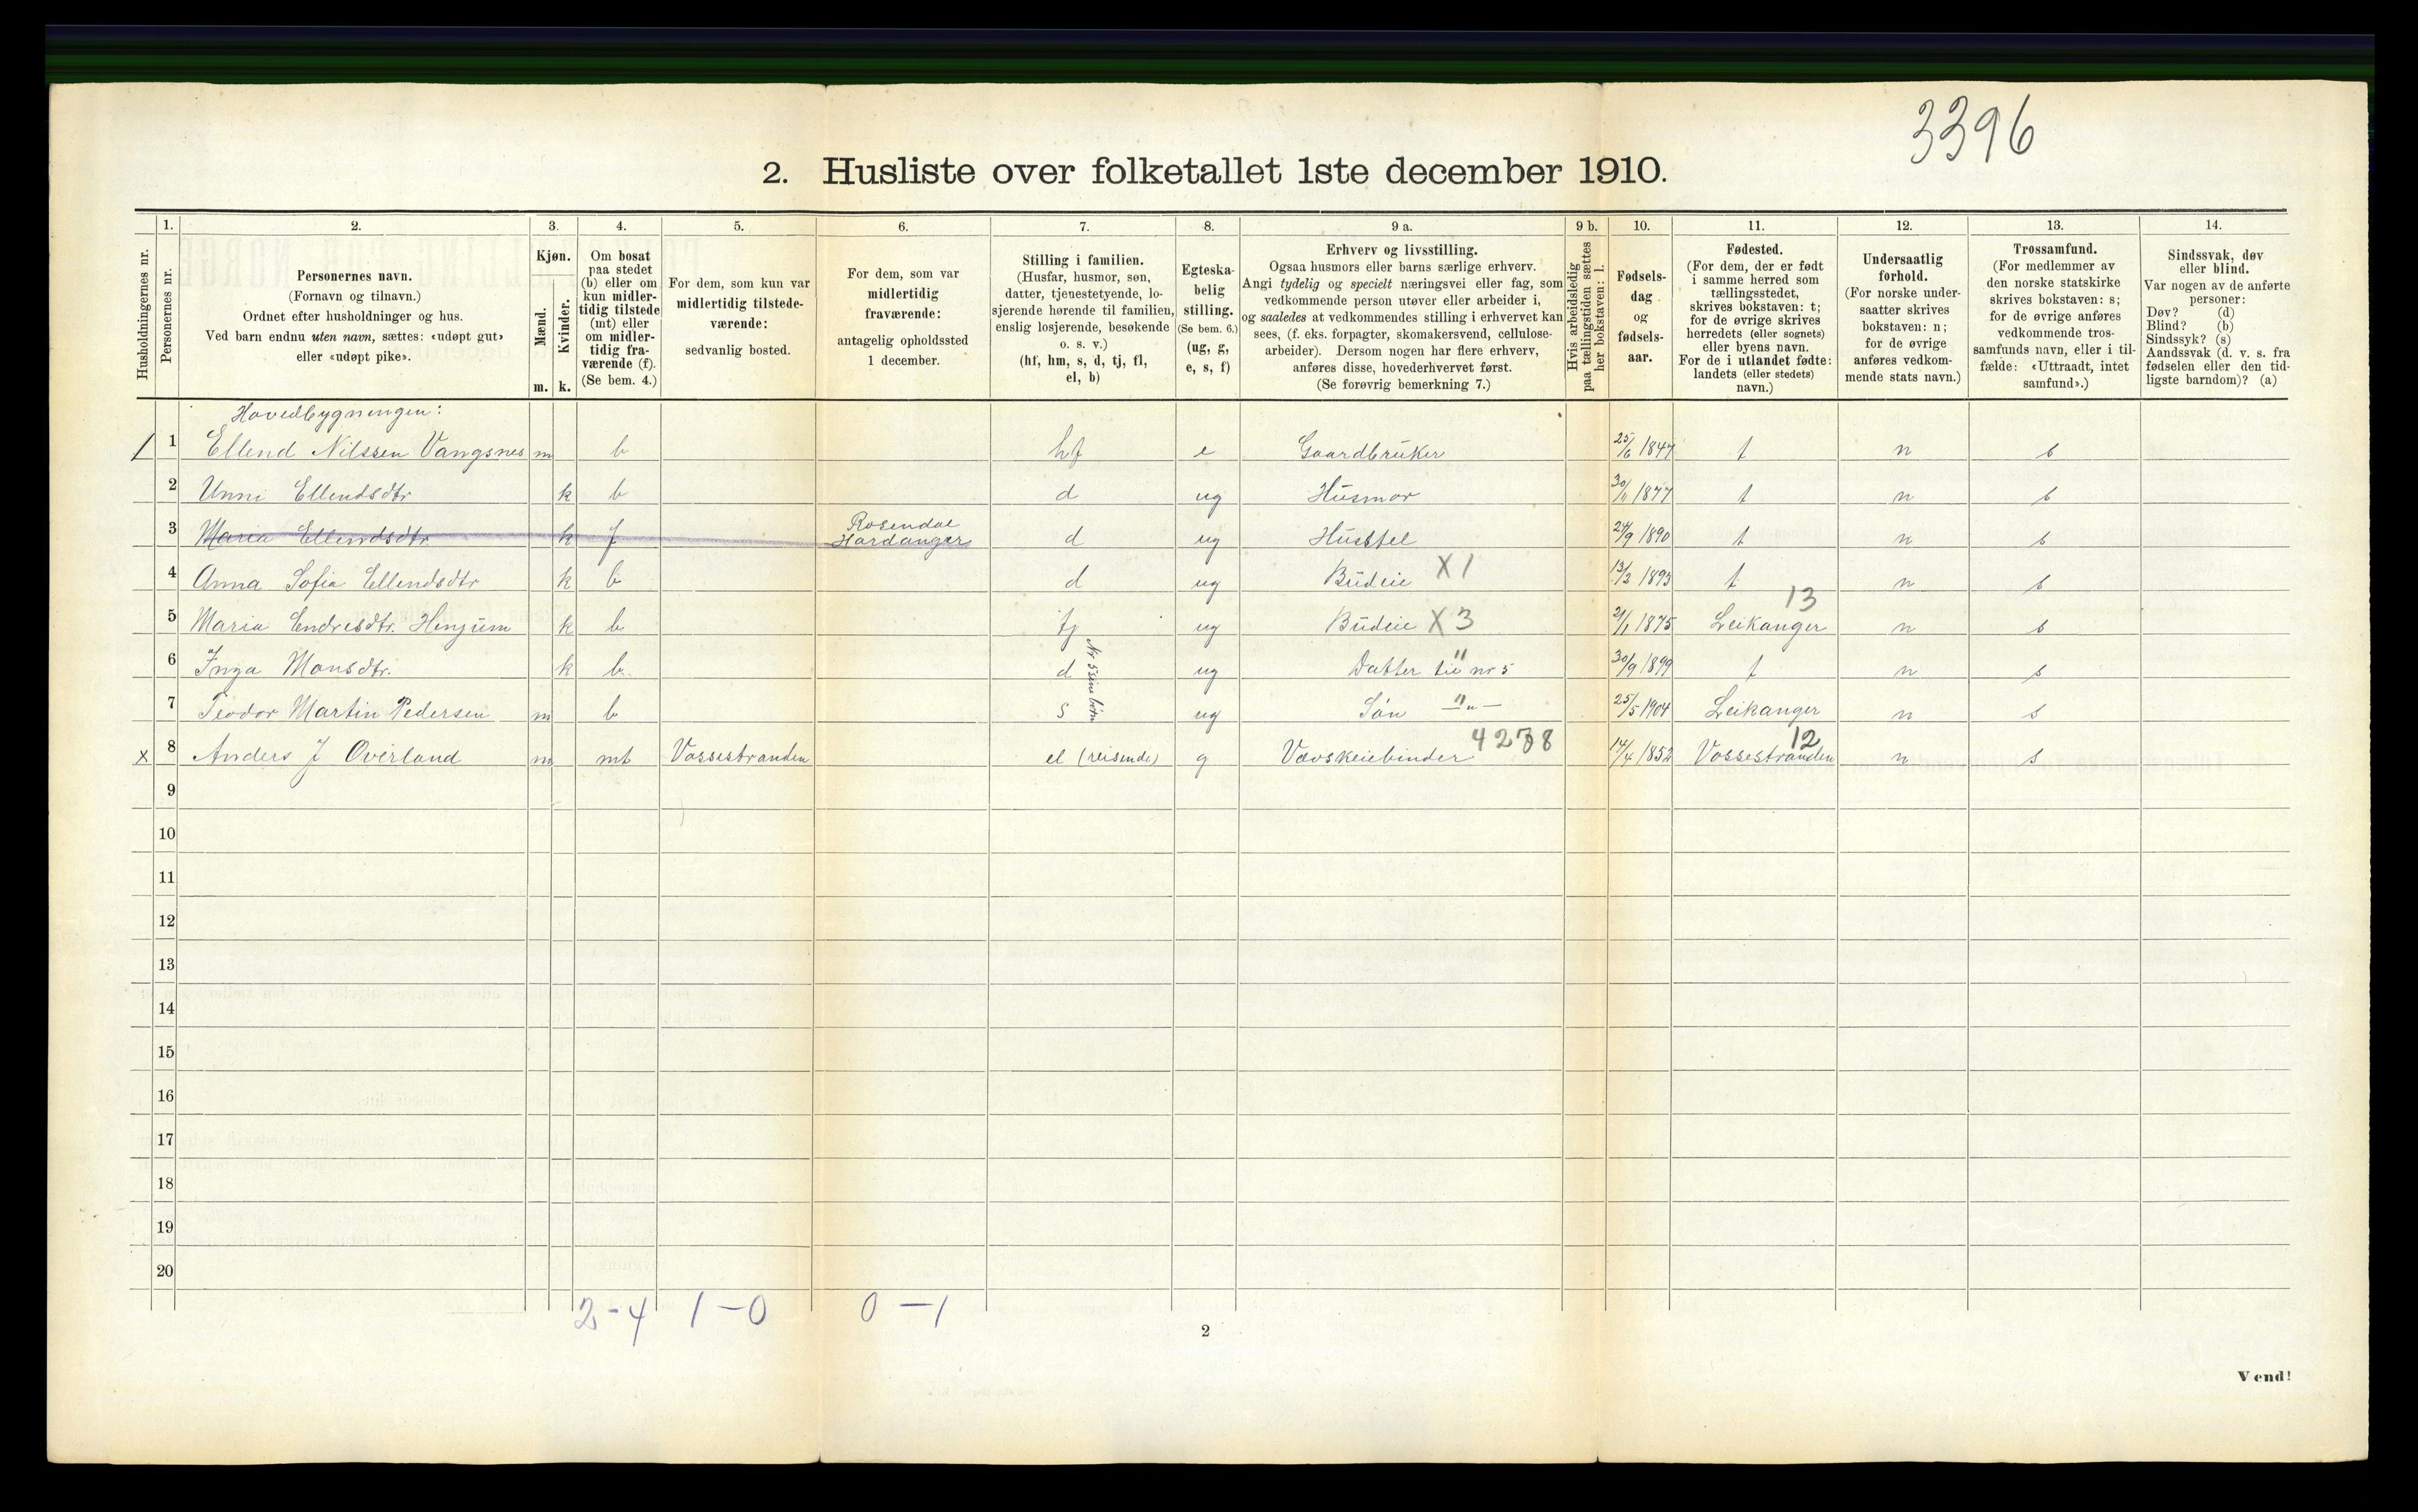 3396
2. Husliste over folketallet 1ste december 1910.
Husholdningernes nr.
1.
Personernes nr.
2.
Personernes navn.
(Fornavn og tilnavn.)
Ordnet efter husholdninger og hus.
Ved barn endnu uten navn, sættes: «udøpt gut»
eller «udøpt pike».
3.
Kjøn.
Mænd.
Kvinder.
m. k.
4.
Om bosat
paa stedet
(b) eller om
kun midler-
tidig tilstede
(mt) eller
om midler-
tidig fra-
værende (f).
(Se bem. 4.)
5.
For dem, som kun var
midlertidig tilstede-
værende:
sedvanlig bosted.
6.
For dem, som var
midlertidig
fraværende:
antagelig opholdssted
1 december.
7.
Stilling i familien.
(Husfar, husmor, søn,
datter, tjenestetyende, lo-
sjerende hørende til familien,
enslig losjerende, besøkende
o. s. v.)
(hf, hm, s, d, tj, fl,
el, b)
8.
Egteska-
belig
stilling.
(Se bem. 6.)
(ug, g,
e, s, f)
9 a.
Erhverv og livsstilling.
Ogsaa husmors eller barns særlige erhverv.
Angi tydelig og specielt næringsvei eller fag, som
vedkommende person utøver eller arbeider i,
og saaledes at vedkommendes stilling i erhvervet kan
sees, (f. eks. forpagter, skomakersvend, cellulose-
arbeider). Dersom nogen har flere erhverv,
anføres disse, hovederhvervet først.
(Se forøvrig bemerkning 7.)
9 b.
Hvis arbeidsledig
paa tællingstiden sættes
her bokstaven: l.
10.
Fødsels-
dag
og
fødsels-
aar.
11.
Fødested.
(For dem, der er født
i samme herred som
tællingsstedet,
skrives bokstaven: t;
for de øvrige skrives
herredets (eller sognets)
eller byens navn.
For de i utlandet fødte:
landets (eller stedets)
navn.)
12.
Undersaatlig
forhold.
(For norske under-
saatter skrives
bokstaven: n;
for de øvrige
anføres vedkom-
mende stats navn.)
13.
Trossamfund.
(For medlemmer av
den norske statskirke
skrives bokstaven: s;
for de øvrige anføres
vedkommende tros-
samfunds navn, eller i til-
fælde: «Uttraadt, intet
samfund».)
14.
Sindssvak, døv
eller blind.
Var nogen av de anførte
personer:
Døv? (d)
Blind? (b)
Sindssyk? (s)
Aandssvak (d. v. s. fra
fødselen eller den tid-
ligste barndom)? (a)
Hovedbygningen:
1 Ellend Nilssen Vangsnes m b hf e Gaardbruker 25/6 1847 t n s
2 Unni Ellendsdtr k b d ug Husmor 30/11 1877 t n s
3 Maria Ellendsdtr. k f Rosendal Hardanger d ug Husstel 24/9 1890 t n s
4 Anna Sofia Ellendsdtr k b d ug Budeie X1 13/2 1893 t n s
5 Maria Endresdtr. Henjum k b tj ug Budeie X3 2/1 1875 Leikanger 13 n s
6 Inga Monsdtr. k b d Nr 5 sine børn ug Datter til nr 5 " 30/9 1899 t n s
7 Teodor Martin Pedersen m b s ug Søn —"— " 25/5 1904 Leikanger n s
x 8 Anders J Øverland m mt Vossestranden el (reisende) g Vævskeiebinder 14/4 1852 Vossestranden 12 n s
9
10
11
12
13
14
15
16
17
18
19
20
2-4 1-0 0-1
2
Vend!